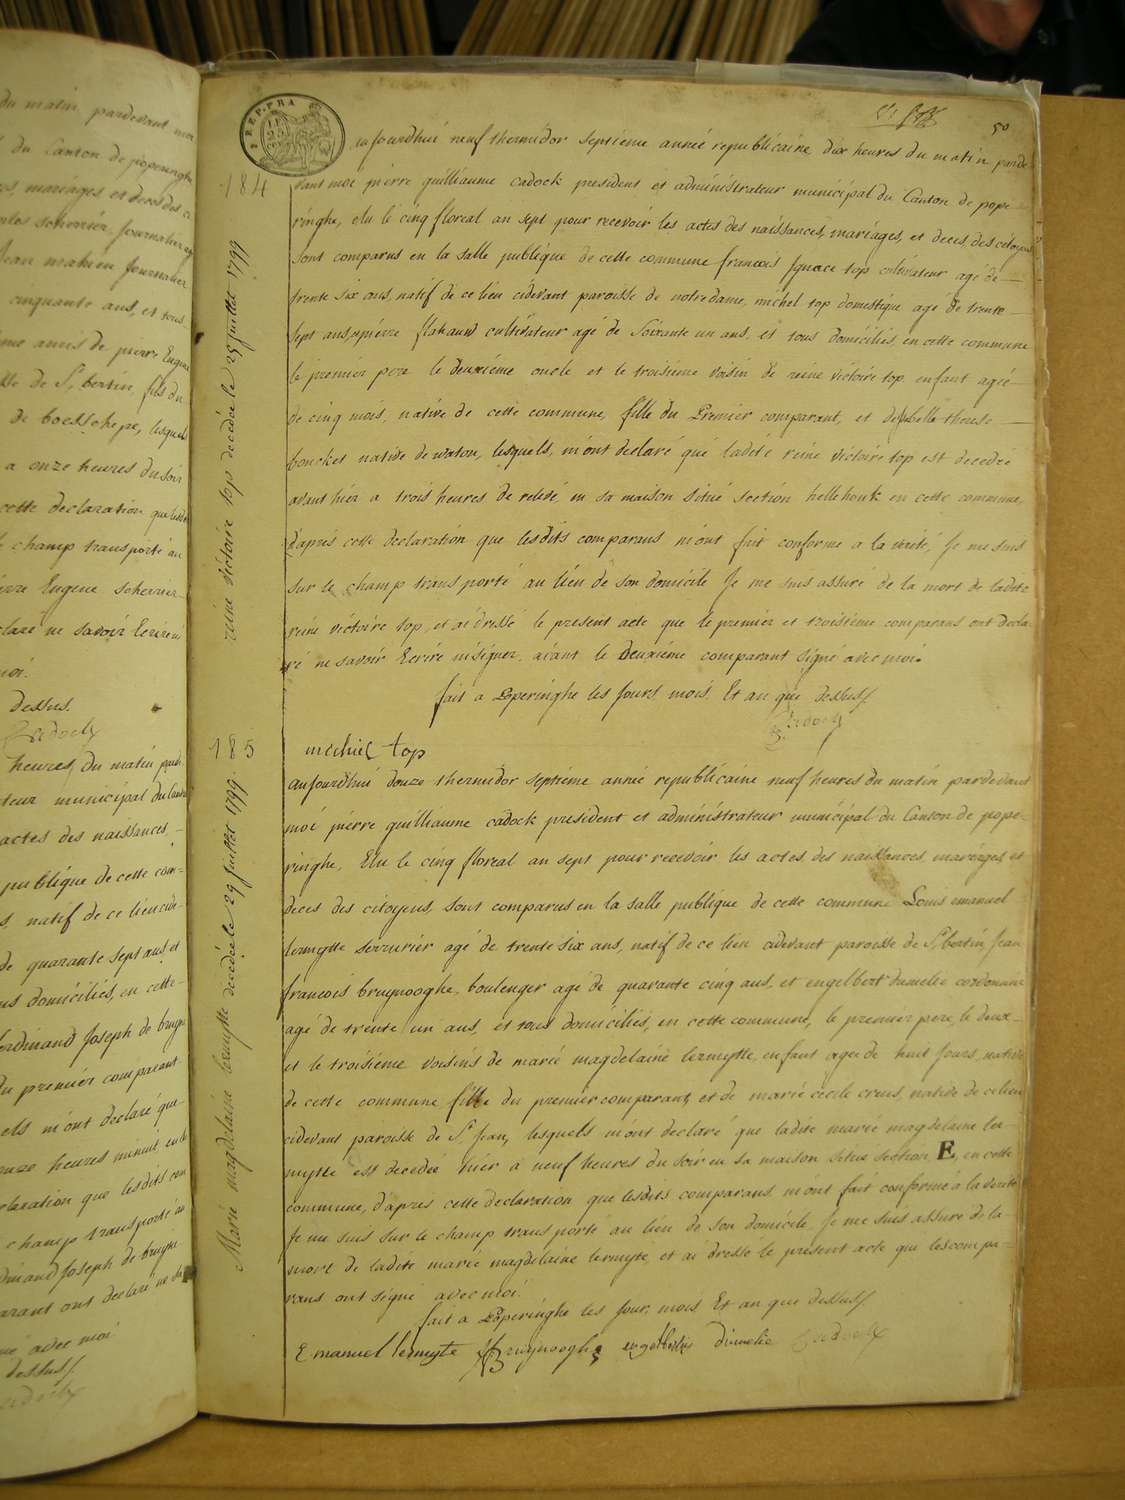 du matin, pardevant moi
du Canton de poperinghe
mariages, et deces des
scherrier, journalier
Jean mahieu journalier
cinquante ans, et tous
amis de pierre Eugene
de St bertin, fils du
de boesschepe, lesquels
a onze heures du soir
cette declaration que
champ transporté au
Eugene scherrier
ne savoir Ecrire ni
moi.
dessus.
Cadock
heures du matin
municipal du
actes des naissances,
publique de cette com-
natif de ce lieu
de quarante sept ans, et
domiciliés, en cette
ferdinand Joseph de
du premier comparant
m'ont declaré que
heures minuit, en
declaration que lesdits
champ transporté au
Joseph de
ont declaré ne
avec moi
dessus
Cadock
50
REP. FRA
184
reine victoire top decédée le 25 juillet 1799
aujourdhui neuf thermidor septieme année republicaine dix heures du matin parde
vant moi pierre guilliaume cadock president et administrateur municipal du Canton de pope
ringhe, elu le cinq floreal an sept pour recevoir les actes des naissances, mariages, et deces, des citoyens
sont comparus en la salle publique de cette commune francois Ignace top cultivateur agé de
trente six ans, natif de ce lieu cidevant paroisse de notre dame, michel top domestique agé de trente
sept ans, pierre flahauw cultivateur agé de Soixante un ans, et tous domiciliés, en cette commune
le premier pere le deuxiéme oncle et le troisiéme voisin de reine victoire top enfant agée
de cinq mois, native de cette commune, fille du Premier comparant, et d'isabelle therese
boncket native de waton, lesquels, m'ont declaré que ladite reine victoire top est decedée
avant hier a trois heures de relevé, en sa maison situé section hellehouk en cette commune,
d'apres cette declaration que lesdits comparans m'ont fait conforme a la verité, Je me suis
sur le champ transporté au lieu de son domicile Je me suis assuré de la mort de ladite
reine victoire top, et ai dressé le present acte que le premier et troisiéme comparans ont decla
ré ne savoir Ecrire ni signer, aiant le deuxiéme comparant signé avec moi.
fait a Poperinghe les Jours, mois, Et an que dessus
Cadock
michiel top
185
Marie magdelaine lermytte decédée le 29 juillet 1799
aujourdhui douze thermidor septiéme année republicaine neuf heures du matin pardevant
moi pierre guilliaume cadock president et administrateur municipal du Canton de pope-
ringhe, Elu le cinq floreal an sept pour recevoir les actes, des naissances, mariages, et
deces des citoyens, sont comparus en la salle publique de cette commune Louis emanuel
lermytte serrurier agé de trente six ans, natif de ce lieu cidevant paroisse de St bertin, Jean
francois bruynooghe, boulenger agé de quarante cinq ans, et engelbert dumelie cordonnier
agé de trente un ans, et tous domiciliés, en cette commune, le premier pere, le deux-
et le troisiéme voisins de marie magdelaine lermytte, enfant agée de huit Jours, native
de cette commune fille du premier comparant, et de marie cecile creus, native de ce lieu
cidevant paroisse de St Jean, lesquels m'ont declaré que ladite marie magdelaine ler-
mytte est decedée hier a neuf heures du soir en sa maison située section E, en cette
commune, d'apres cette declaration que lesdits comparans m'ont fait conforme à la verité
Je me suis sur le champ transporté au lieu de son domicile, Je me suis assuré de la
mort de ladite marie magdelaine lermytte, et ai dressé le present acte que les compa-
rans ont signé avec moi.
fait a Poperinghe les Jour, mois Et an que dessus
Emanuel lermytte JF Bruynooghe engelbertus dumelie Cadock